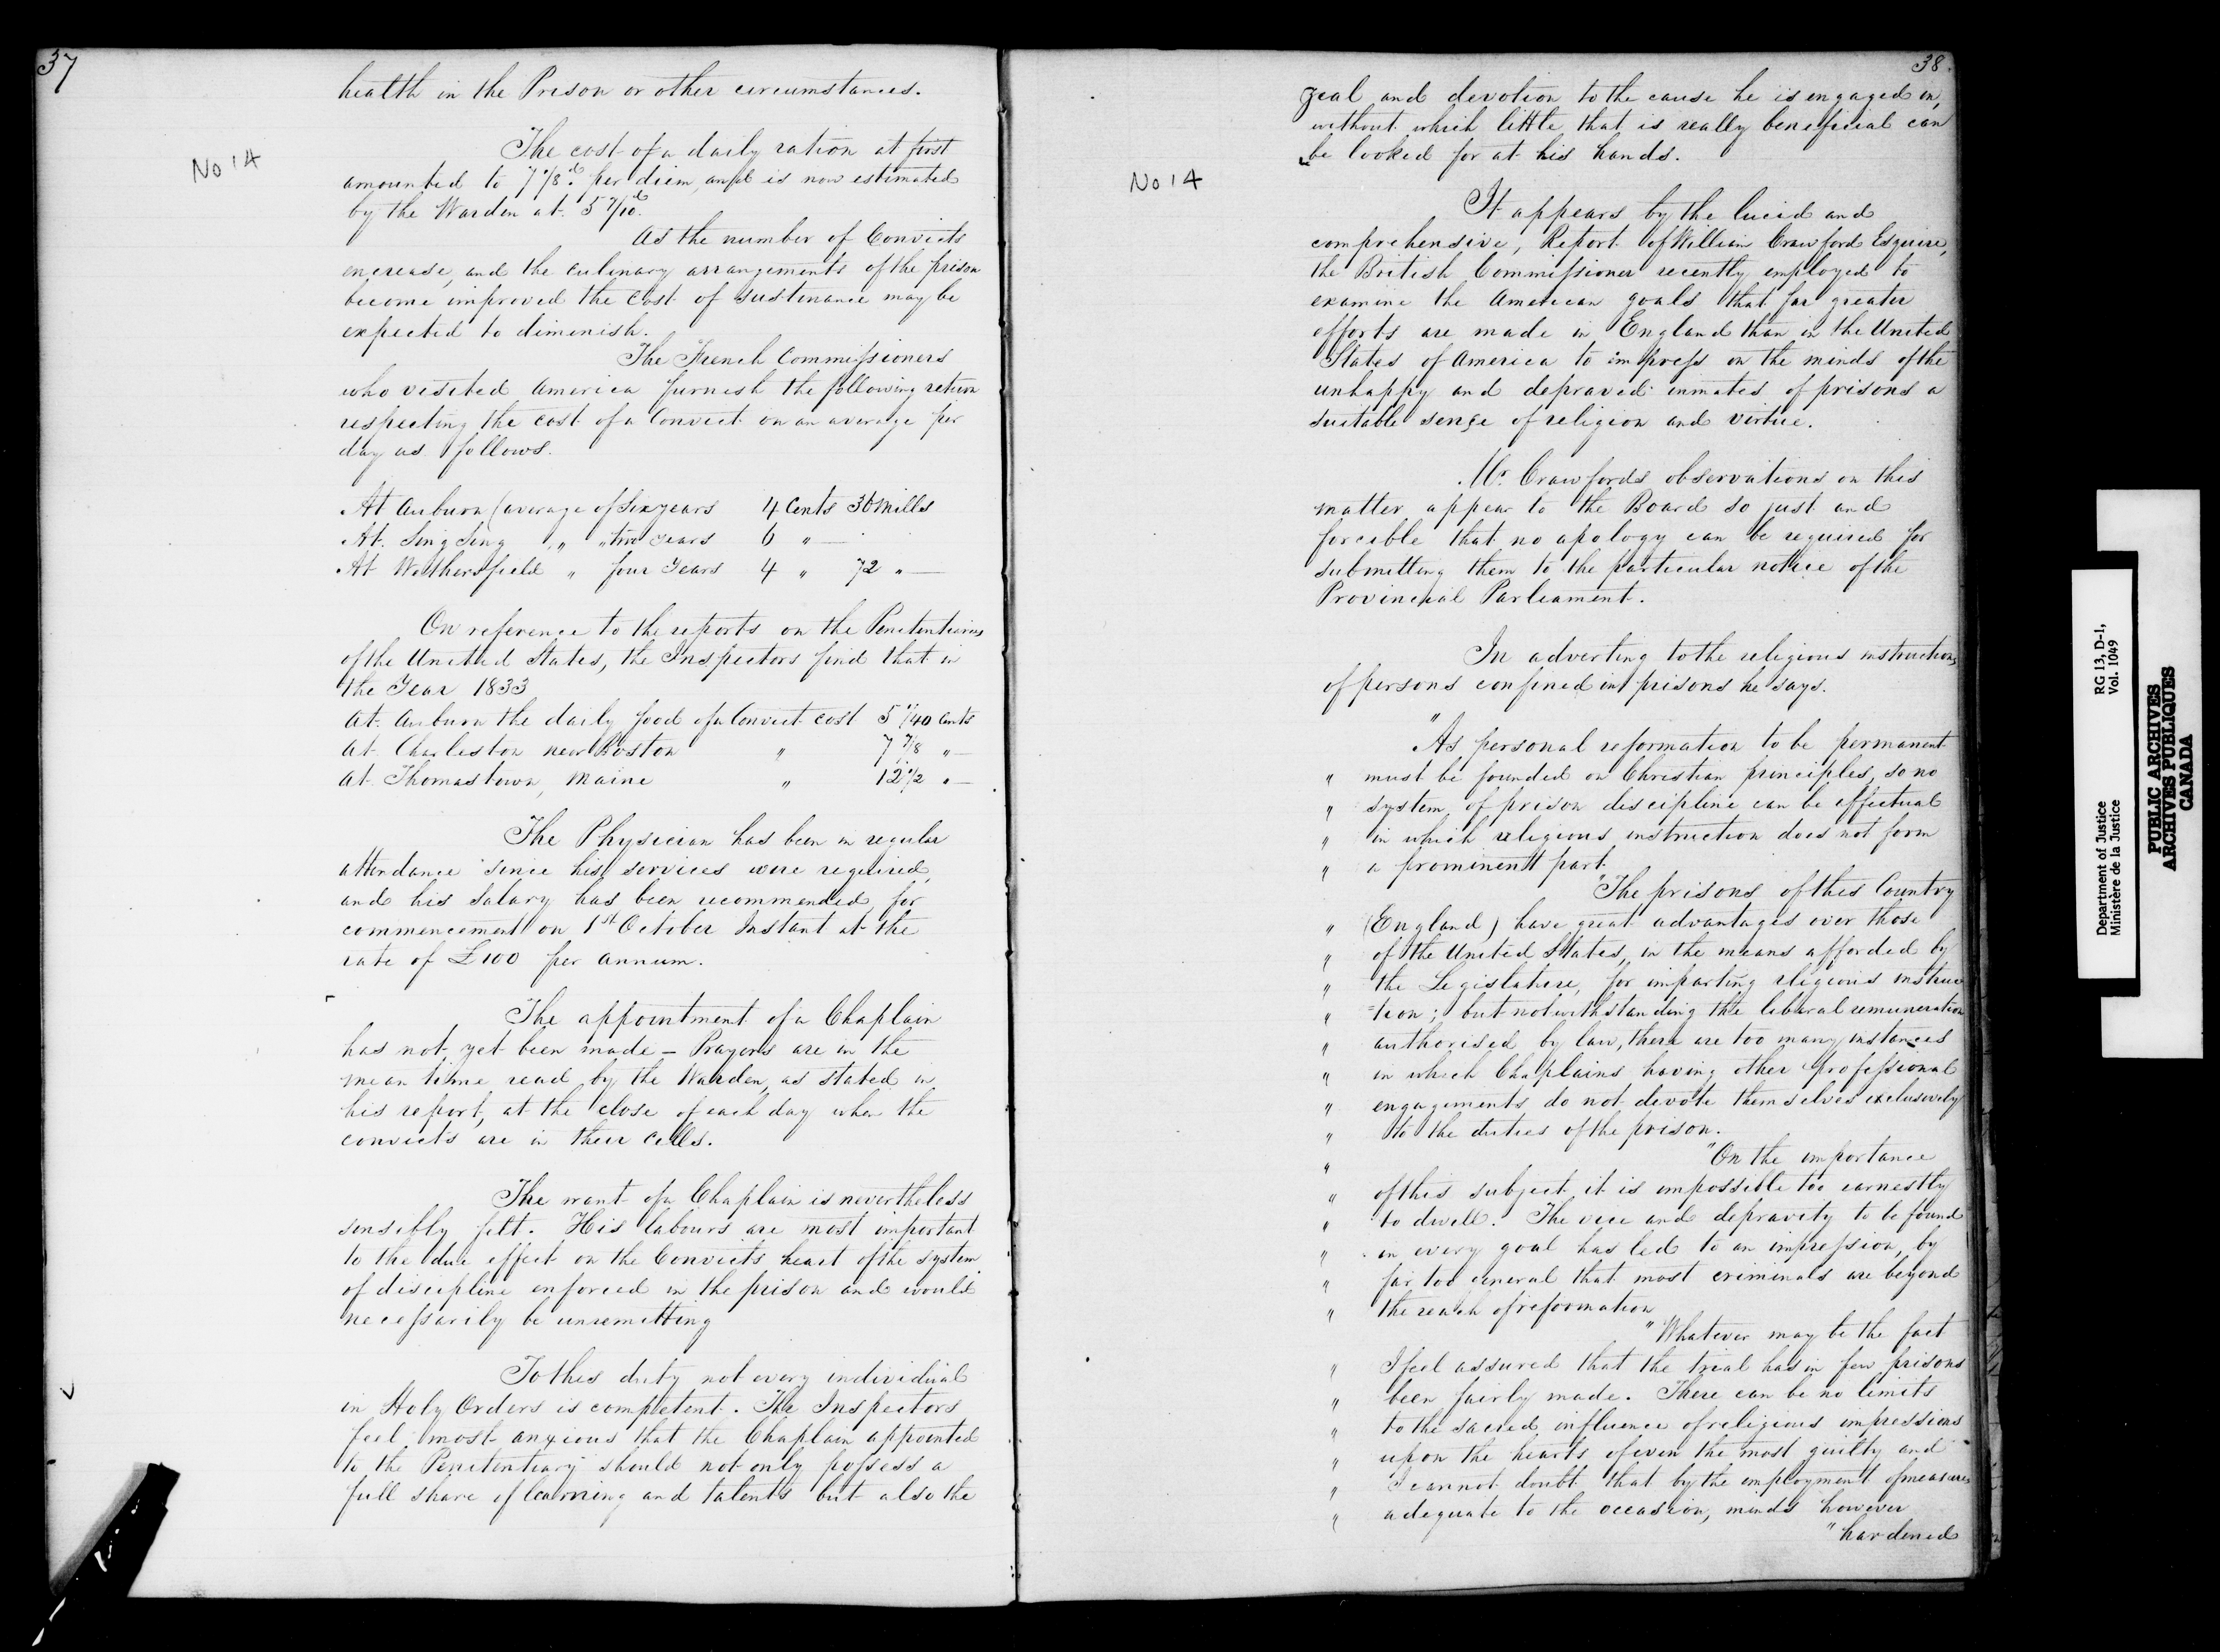 37
health in the Prison or other circumstances.
No 14
The cost of a daily ration at first
amounted to 7 7/8d per diem, and is now estimated
by the Warden at 5 7/10d.
As the number of Convicts
increase, and the culinary arrangements of the prison
become improved the cost of sustinance may be
expected to diminish.
The French Commissioners
who visited America furnish the following return
respecting the cost of a Convict on an average per
day as follows.
At Auburn (average of Six years 4 Cents 36 Mills
At Sing Sing " " two Years 6 " —
At Wethersfield " four Years 4 " 72 " —
On reference to the reports on the Penitentiaries
of the United States, the Inspectors find that in
the Year 1833
At Auburn the daily food of a Convict cost 5 1/40 Cents
At Charleston near Boston " 7 7/8 " —
At Thomastown, Maine " 12 1/2 " —
The Physician has been in regular
attendance since his services were required,
and his Salary has been recommended, for
commencement on 1st October Instant at the
rate of £100 per annum.
The appointment of a Chaplain
has not yet been made — Prayers are in the
mean time read by the Warden, as stated in
his report, at the close of each day when the
convicts are in their cells.
The want of a Chaplain is nevertheless
sensibly felt. His labours are most important
to the due effect on the Convicts heart of the system
of discipline enforced in the prison and would
necessarily be unremitting
To this duty not every individual
in Holy Orders is competent. The Inspectors
feel most anxious that the Chaplain appointed
to the Penitentiary should not only possess a
full share of learning and talents but also the
38.
zeal and devotion to the cause he is engaged in,
without which little that is really beneficial can
be looked for at his hands.
No 14
It appears by the lucid and
comprehensive, Report of William Crawford Esquire,
the British Commissioner recently employed to
examine the American goals that far greater
efforts are made in England than in the United
States of America to impress on the minds of the
unhappy and depraved inmates of prisons a
suitable sense of religion and virtue.
Mr. Crawfords observations on this
matter appear to the Board so just and
forcible that no apology can be required for
submitting them to the particular notice of the
Provincial Parliament.
In adverting to the religious instructions
of persons confined in prisons he says.
"As personal reformation to be permanent
" must be founded on Christian principles, so no
" system of prison discipline can be effectual
" in which religious instruction does not form
" a prominent part.
"The prisons of this Country
" (England) have great advantages over those
" of the United States, in the means afforded by
" the Legislature, for imparting religious instruc
" =tion; but notwithstanding the liberal remuneration
" authorised by law, there are too many instances
" in which Chaplains having other professional
" engagements do not devote themselves exclusively
" to the duties of the prison.
" "On the importance
" of this subject it is impossible too earnestly
" to dwell. The vice and depravity to be found
" in every goal has led to an impression, by
" far too general that most criminals are beyond
" the reach of reformation
"Whatever may be the fact
" I feel assured that the trial has in few prisons
" been fairly made. There can be no limits
" to the sacred influence of religious impressions
" upon the hearts of even the most guilty and
" I cannot doubt that by the employment of measures
" adequate to the occasion, minds however
"hardened
Department of Justice RG 13, D-1,
Ministère de la Justice Vol. 1049
PUBLIC ARCHIVES
ARCHIVES PUBLIQUES
CANADA